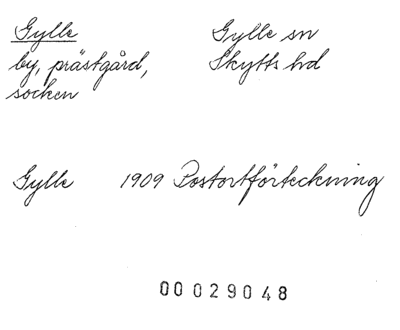 Gylle
by, prästgård,
socken
Gylle sn
Skytts hd
Gylle 1909 Postortförteckning
00029048